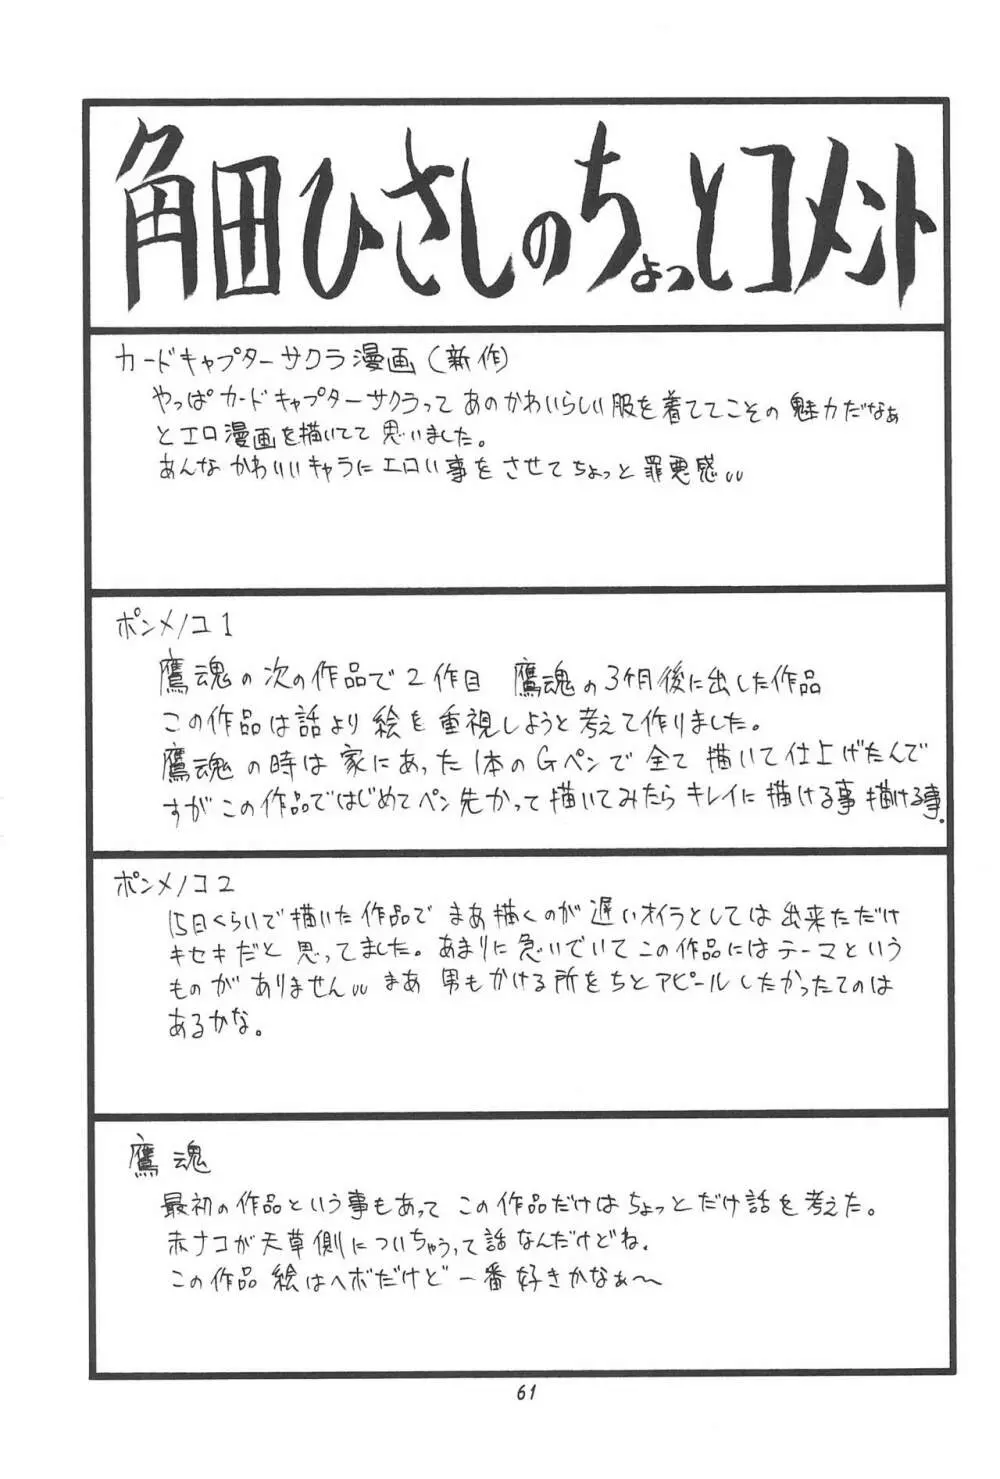 角田ひさしのちょっとコメント
カードキャプターサクラ漫画(新作)
やっぱカードキャプターサクラってあのかわいらしい服を着ててこその魅力だなぁ
とエロ漫画を描いてて思いました。
あんなかわいいキャラにエロい事をさせてちょっと罪悪感〟
ポンメノコ1
鷹魂の次の作品で2作目 鷹魂の3ケ月後に出した作品
この作品は話より絵を重視しようと考えて作りました。
鷹魂の時は家にあった1本のGペンで全て描いて仕上げたんで
すがこの作品ではじめてペン先かって描いてみたらキレイに描ける事描ける事.
ポンメノコ2
15日くらいで描いた作品でまあ描くのが遅いオイラとしては出来ただけ
キセキだと思ってました。あまりに急いでいてこの作品にはテーマという
ものがありません〟まあ男もかける所をちとアピールしたかったてのは
あるかな。
鷹魂
最初の作品という事もあってこの作品だけはちょっとだけ話を考えた。
赤ナコが天草側についちゃうって話なんだけどね.
この作品絵はヘボだけど一番好きかなぁ〜
61